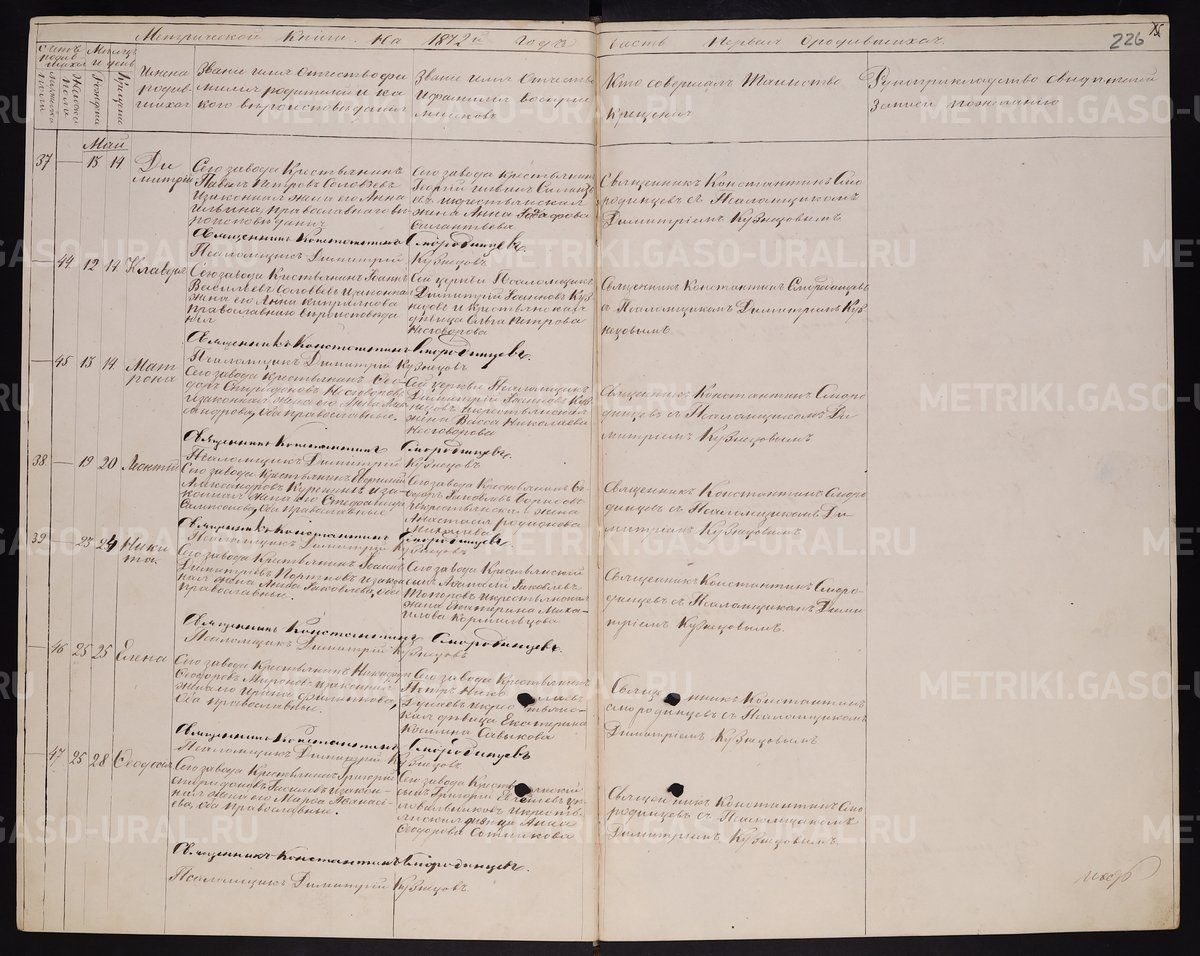 Метрической Книги На 1872й Годъ
Часть Первая о родившихся.
226
Счетъ родившихся
Мѣсяцъ и день
Мужеска пола
Женска пола
Рожденія
Крещенія
Имена
родив-
шихся
Званіе имя Отчество фа
милія родителей и ка
кого вѣроисповѣданія
Званіе имя Отчество
и фамилія воспрі
емниковъ
Кто совершалъ Таинство
Крещенія
Рукоприкладство свидѣтелей
записи по желанію
Май
37 — 13 14
Ди
митрій
Сего завода Крестьянинъ
Павелъ Петровъ Соловьевъ
и законная жена его Анна
Ильина, православнаго вѣ
роисповѣданія
Сего завода крестьянинъ
жена Анна
Священникъ Константинъ Смо
родинцевъ съ Псаломщикомъ
Димитріемъ Кузнецовымъ
Священникъ Константинъ Смородинцевъ
Псаломщикъ Димитрій Кузнецовъ
44 12 14 Клавдія
Сего завода Крестьянинъ Іоаннъ
Васильевъ Соловьевъ и законная
жена его Анна Кипріянова
Православнаго вѣроисповѣда
нія
Сей церкви Псаломщикъ
Димитрій Іоанновъ Куз
нецовъ и Крестьянская
дѣвица Ольга Петрова
Неговорова
Священникъ Константинъ Смородинцевъ
съ Псаломщикомъ Димитріемъ Куз
нецовымъ
Священникъ Константинъ Смородинцевъ.
Псаломщикъ Димитрій Кузнецовъ
45 13 14
Мат
рона
Сего завода Крестьянинъ Фео-
доръ Спиридоновъ Неговоровъ
и законная жена его
Оба православные
Сей церкви Псаломщикъ
Димитрій Іоанновъ Куз
нецовъ и крестьянская
жена Васса Николаева
Неговорова
Священникъ Константинъ Сморо-
динцевъ съ Псаломщикомъ Ди
митріемъ Кузнецовымъ
Священникъ Константинъ Смородинцевъ
Псаломщикъ Димитрій Кузнецовъ
38 — 19 20 Леонтій
Сего завода Крестьянинъ
Александровъ и зако-
нная жена его Стефанида
Самсонова, Оба православные
Сего завода Крестьянинъ
Яковлевъ Борисовъ
и крестьянская жена
Анастасія Родіонова
Священникъ Константинъ Сморо
динцевъ съ Псаломщикомъ Ди
митріемъ Кузнецовымъ
Священникъ Константинъ Смородинцевъ.
Псаломщикъ Димитрій Кузнецовъ
39 — 23 24
Ники
та.
Сего завода Крестьянинъ Іоаннъ
Димитріевъ Портновъ и закон
ная жена Яковлева, оба
православные.
Сего завода Крестьянскій
сынъ Яковлевъ
Топоровъ и крестьянская
жена Екатерина Миха-
илова Кормильцова
Священникъ Константинъ Сморо-
динцевъ съ Псаломщикомъ Дими
тріемъ Кузнецовымъ.
Священникъ Константинъ Смородинцевъ.
Псаломщикъ Димитрій Кузнецовъ
46 25 25 Елена
Сего завода Крестьянинъ
Феодоровъ Мироновъ и законная
жена его Ирина
Оба православные.
Сего завода Крестьянинъ
Петръ
дѣвица Екатерина
Козмина Савыкова
Священникъ Константинъ
Смородинцевъ съ Псаломщикомъ
Димитріемъ Кузнецовымъ
Священникъ Константинъ Смородинцевъ
Псаломщикъ Димитрій Кузнецовъ
47 25 28 Феодосія
Сего завода Крестьянинъ Григорій
Спиридоновъ и закон-
ная жена его Марфа Афанась-
ева, оба православные.
Сего завода Крестьянскій
сынъ Григорій
и крестья-
нская дѣвица Анна
Феодорова
Священникъ Константинъ Смо
родинцевъ съ Псаломщикомъ
Димитріемъ Кузнецовымъ
Священникъ Константинъ Смородинцевъ.
Псаломщикъ Димитрій Кузнецовъ.
METRIKI.GASO-URAL.RU